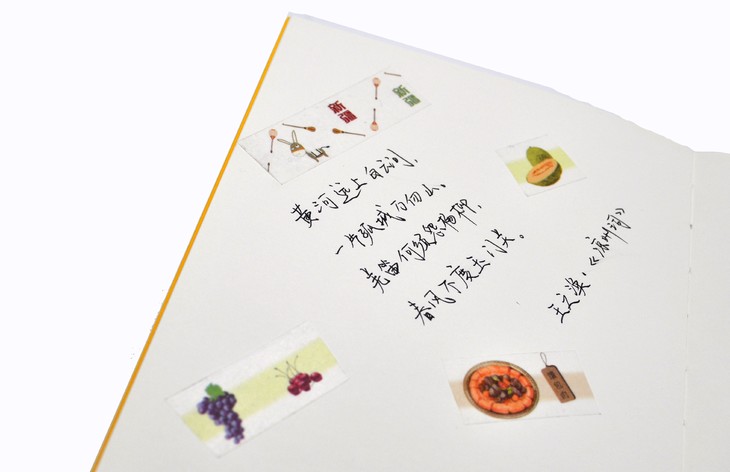 新疆
新疆
黄河远上白云间,
一片孤城万仞山。
羌笛何须怨杨柳,
春风不度玉门关。
王之涣·《凉州词》